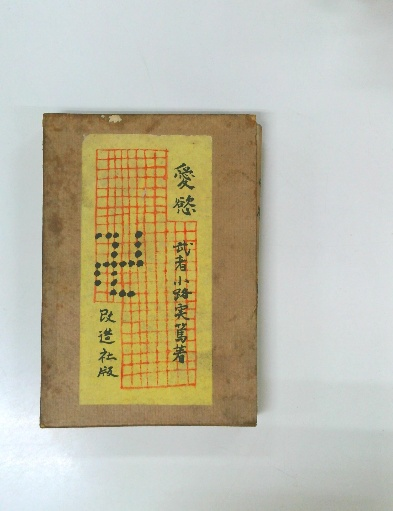 愛慾
武者小路実篤著
改造社版